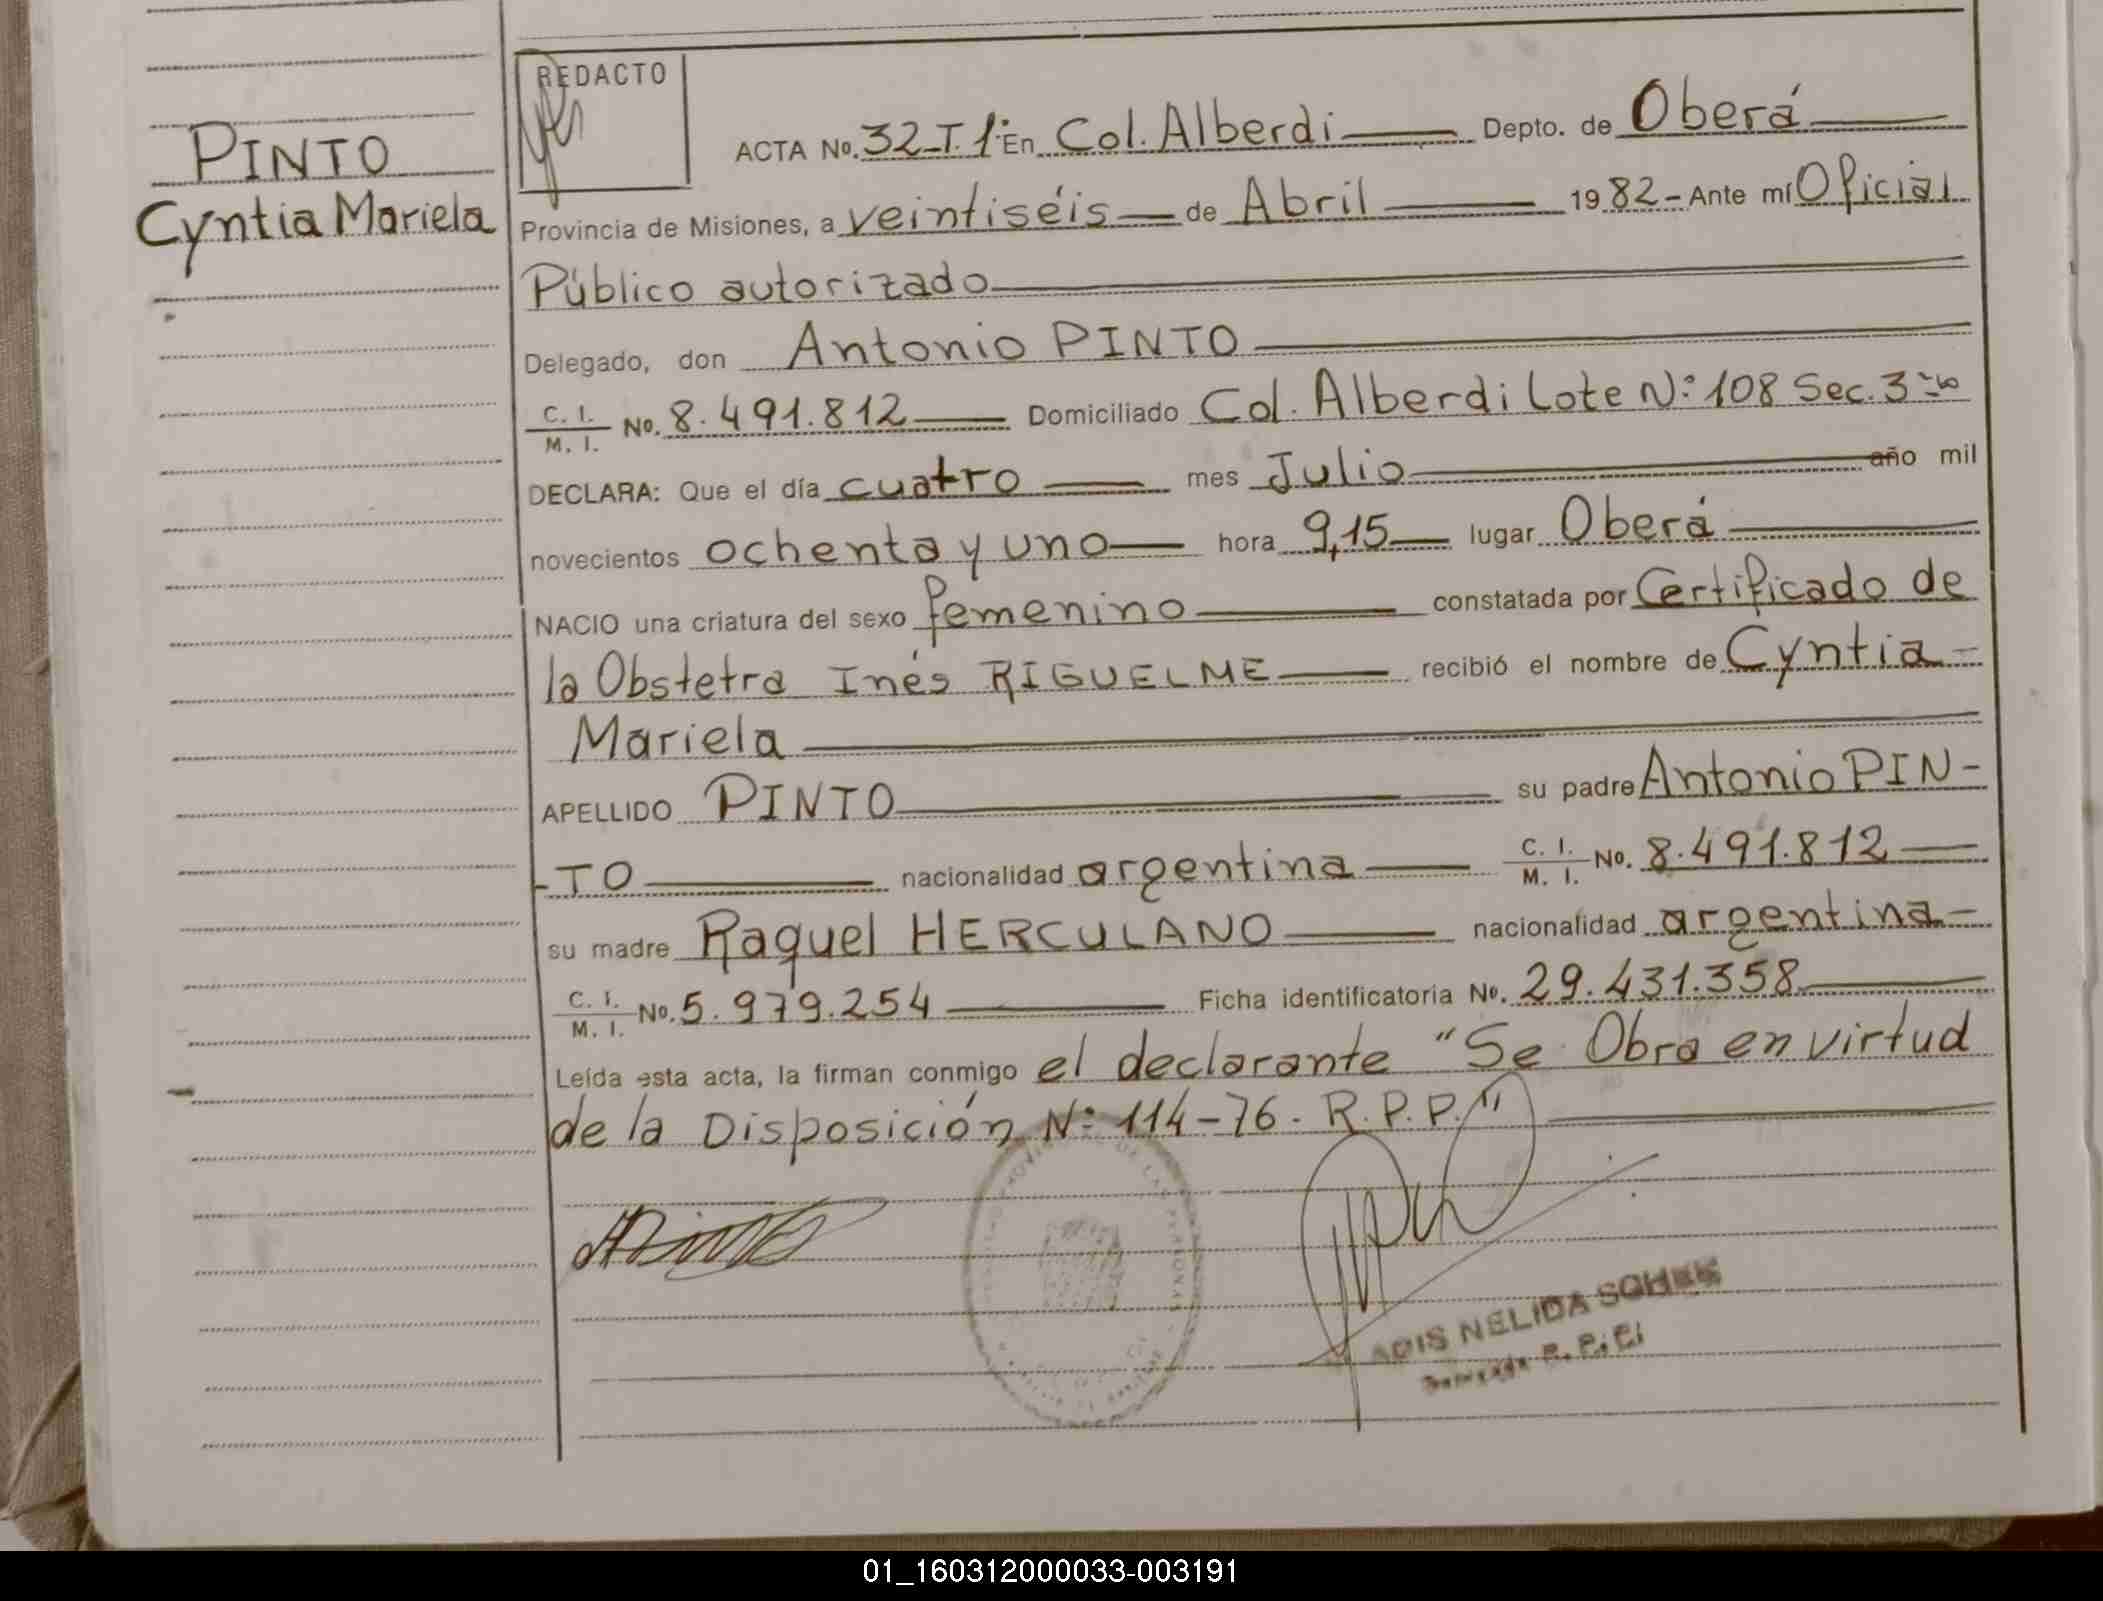 PINTO
Cyntia Mariela
REDACTO
ACTA No. 32-T.1º En Col. Alberdi Depto. de Oberá
Provincia de Misiones, a veintiséis de Abril 1982 - Ante mí Oficial
Público autorizado
Delegado, don Antonio PINTO
C. I. / M. I. No. 8.491.812 Domiciliado Col. Alberdi Lote Nº 108 Sec. 3
DECLARA: Que el día cuatro mes Julio año mil
novecientos ochenta y uno hora 9,15 lugar Oberá
NACIO una criatura del sexo femenino constatada por Certificado de
la Obstetra Inés RIGUELME recibió el nombre de Cyntia
Mariela
APELLIDO PINTO su padre Antonio PIN-
-TO nacionalidad argentina C. I. / M. I. No. 8.491.812
su madre Raquel HERCULANO nacionalidad argentina
C. I. / M. I. No. 5.979.254 Ficha identificatoria No. 29.431.358
Leída esta acta, la firman conmigo el declarante "Se Obra en virtud
de la Disposición Nº 114-76. R.P.P."
NELIDA
01_160312000033-003191